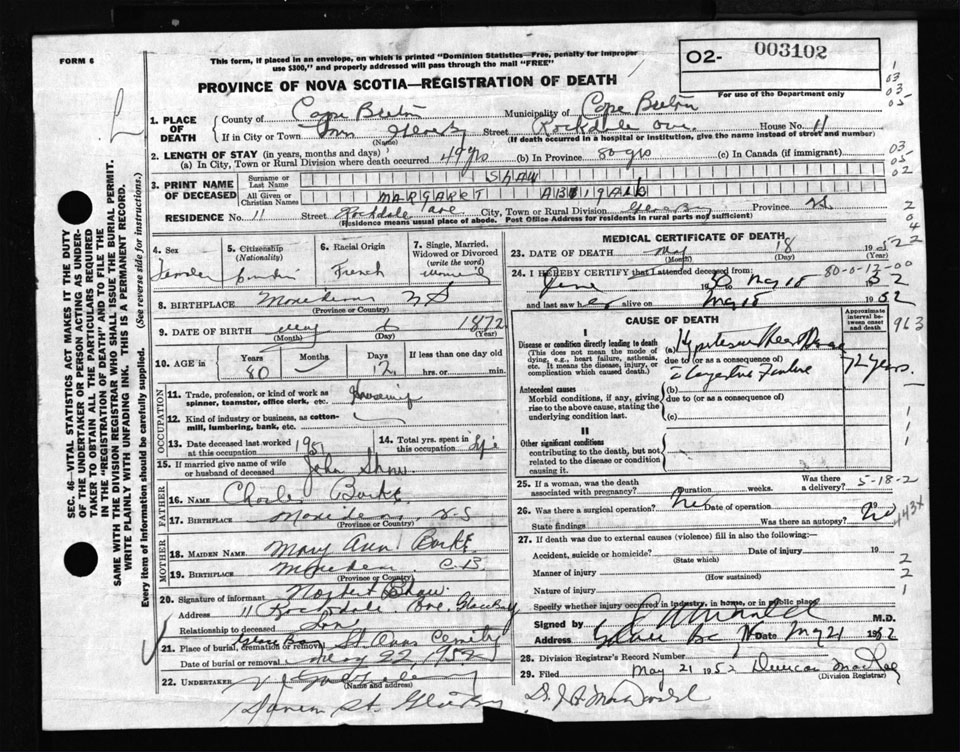 FORM 6
This form, if placed in an envelope, on which is printed "Dominion Statistics—Free, penalty for improper
use $300," and properly addressed will pass through the mail "FREE"
O2- 003102
For use of the Department only
PROVINCE OF NOVA SCOTIA—REGISTRATION OF DEATH
1. PLACE OF DEATH
County of Cape Breton Municipality of Cape Breton
If in City or Town Glace Bay Street Rockdale Ave. House No. 11
(Name) (If death occurred in a hospital or institution, give the name instead of street and number)
2. LENGTH OF STAY (in years, months and days)
(a) In City, Town or Rural Division where death occurred 49 yrs (b) In Province 80 yrs (c) In Canada (if immigrant)
3. PRINT NAME OF DECEASED
Surname or Last Name SHAW
All Given or Christian Names MARGARET ABBIGALE
RESIDENCE No. 11 Street Rockdale ave City, Town or Rural Division Glace Bay Province NS
(Residence means usual place of abode. Post Office Address for residents in rural parts not sufficient)
4. Sex
5. Citizenship (Nationality)
6. Racial Origin French
7. Single, Married, Widowed or Divorced (write the word)
8. BIRTHPLACE N S
(Province or Country)
9. DATE OF BIRTH May 6 1872
(Month) (Day) (Year)
10. AGE in Years 80 Months Days 12 If less than one day old hrs. or min.
OCCUPATION
11. Trade, profession, or kind of work as spinner, teamster, office clerk, etc. Housewife
12. Kind of industry or business, as cotton-mill, lumbering, bank, etc.
13. Date deceased last worked at this occupation 1951
14. Total yrs. spent in this occupation Life
15. If married give name of wife or husband of deceased John Shaw
FATHER
16. NAME Charles Borke
17. BIRTHPLACE N-S
(Province or Country)
MOTHER
18. MAIDEN NAME Mary Ann Borke
19. BIRTHPLACE C-B
(Province or Country)
20. Signature of informant Norbert Shaw
Address 11 Rockdale Ave. Glace Bay
Relationship to deceased Son
21. Place of burial, cremation or removal Glace Bay St Anns Cemetry
Date of burial or removal May 22, 1952
22. UNDERTAKER
(Name and address)
St. Glace Bay
MEDICAL CERTIFICATE OF DEATH
23. DATE OF DEATH May 18 1952
(Month) (Day)
80-0-12-00
24. I HEREBY CERTIFY that I attended deceased from:
June 1950 to May 18 1952
and last saw her alive on May 18 1952
CAUSE OF DEATH
Approximate interval between onset and death
I
Disease or condition directly leading to death
(This does not mean the mode of dying, e.g., heart failure, asthenia, etc. It means the disease, injury, or complication which caused death.)
(a) Hypertensive Heart Disease
due to (or as a consequence of)
Congestive Failure
Antecedent causes
Morbid conditions, if any, giving rise to the above cause, stating the underlying condition last.
(b)
due to (or as a consequence of)
(c)
II
Other significant conditions
contributing to the death, but not related to the disease or condition causing it.
25. If a woman, was the death associated with pregnancy? Duration weeks. Was there a delivery?
5-18-2
26. Was there a surgical operation? No Date of operation
State findings Was there an autopsy? No
443x
27. If death was due to external causes (violence) fill in also the following:—
Accident, suicide or homicide? Date of injury 19
(State which)
Manner of injury
(How sustained)
Nature of injury
Specify whether injury occurred in industry, in home, or in public place
Signed by M.D.
Address Glace Bay Date May 21 1952
28. Division Registrar's Record Number
29. Filed May 21 1952 Duncan MacRae
(Division Registrar)
963
SEC. 46—VITAL STATISTICS ACT MAKES IT THE DUTY
OF THE UNDERTAKER OR PERSON ACTING AS UNDER-
TAKER TO OBTAIN ALL THE PARTICULARS REQUIRED
IN THE "REGISTRATION OF DEATH" AND TO FILE THE
SAME WITH THE DIVISION REGISTRAR WHO SHALL ISSUE THE BURIAL PERMIT.
WRITE PLAINLY WITH UNFADING INK. THIS IS A PERMANENT RECORD.
Every item of information should be carefully supplied. (See reverse side for instructions.)